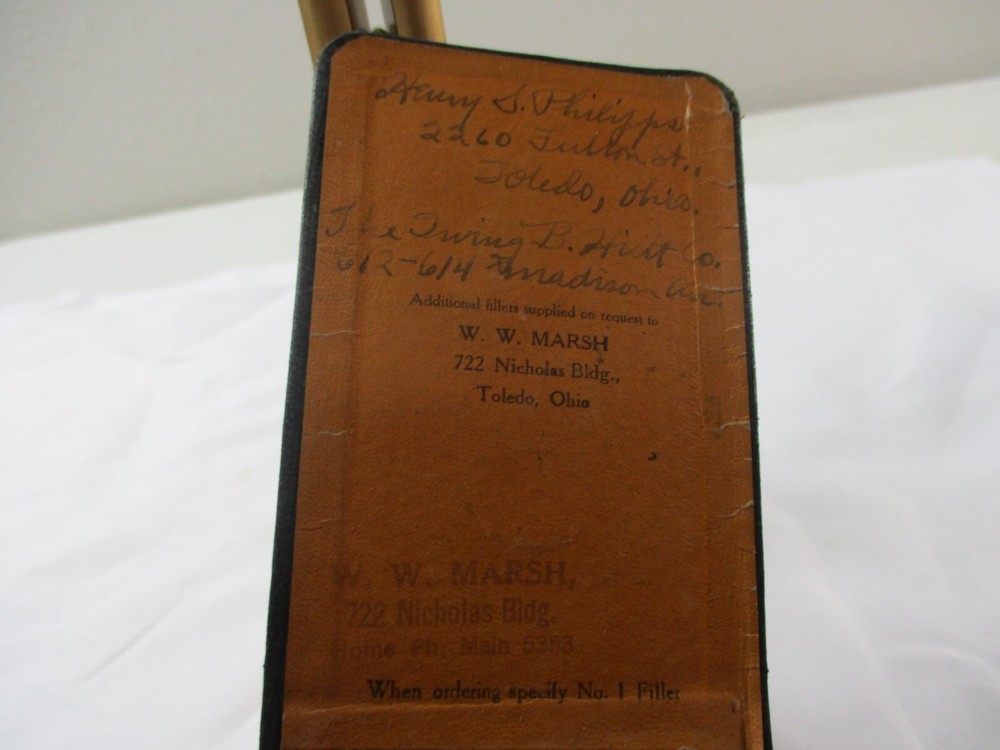 Henry S. Philipps
2260 Fulton St.,
Toledo, Ohio.
The Irving B. Hiett Co.
612-614 Madison Av.
Additional fillers supplied on request to
W. W. MARSH
722 Nicholas Bldg.,
Toledo, Ohio
W. W. MARSH,
722 Nicholas Bldg.
Home Ph. Main 5353
When ordering specify No. 1 Filler